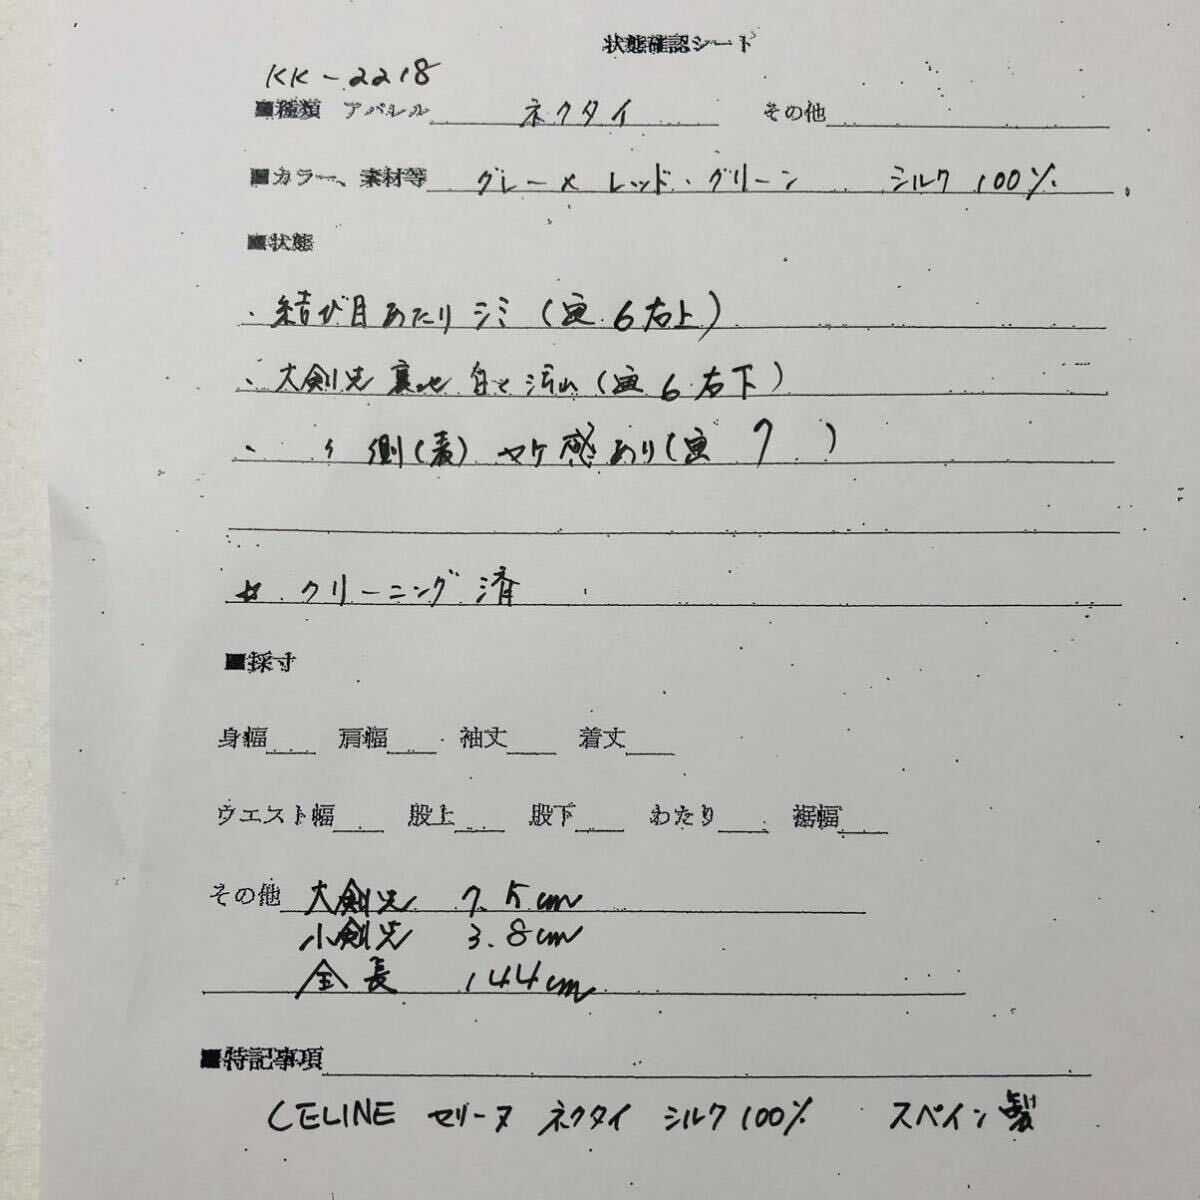 状態確認シート
KK-2218
■種類 アパレル ネクタイ その他
■カラー、素材等 グレー×レッド・グリーン シルク100%
■状態
・結び目あたりシミ(画6右上)
・大剣先裏地 白く汚れ(画6右下)
・〃側(表)ヤケ感あり(画7)
☆クリーニング済
■採寸
身幅 肩幅 袖丈 着丈
ウエスト幅 股上 股下 わたり 裾幅
その他 大剣先 7.5cm
小剣先 3.8cm
全長 144cm
■特記事項
CELINE セリーヌ ネクタイ シルク100% スペイン製